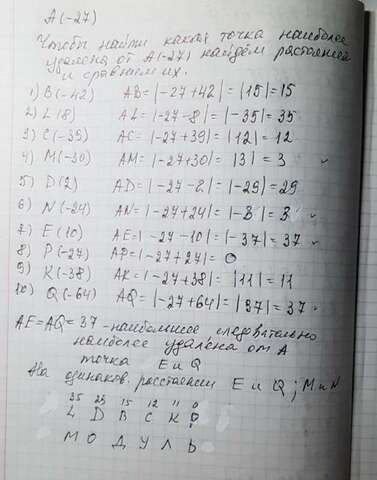 A(-27)
Чтобы найти какая точка наиболее
удалена от A(-27) найдём растояния
и сравним их.
1) B(-42) AB=|-27+42|=|15|=15
2) L(8) AL=|-27-8|=|-35|=35
3) C(-39) AC=|-27+39|=|12|=12
4) M(-30) AM=|-27+30|=|3|=3
5) D(2) AD=|-27-2|=|-29|=29
6) N(-24) AN=|-27+24|=|-3|=3
7) E(10) AE=|-27-10|=|-37|=37
8) P(-27) AP=|-27+27|=0
9) K(-38) AK=|-27+38|=|11|=11
10) Q(-64) AQ=|-27+64|=|37|=37
AE=AQ=37 - наибольшее следовательно
наиболее удалена от A
точка E и Q
На одинаков. расстоянии E и Q; M и N
35 29 15 12 11 0
L D B C K P
М О Д У Л Ь